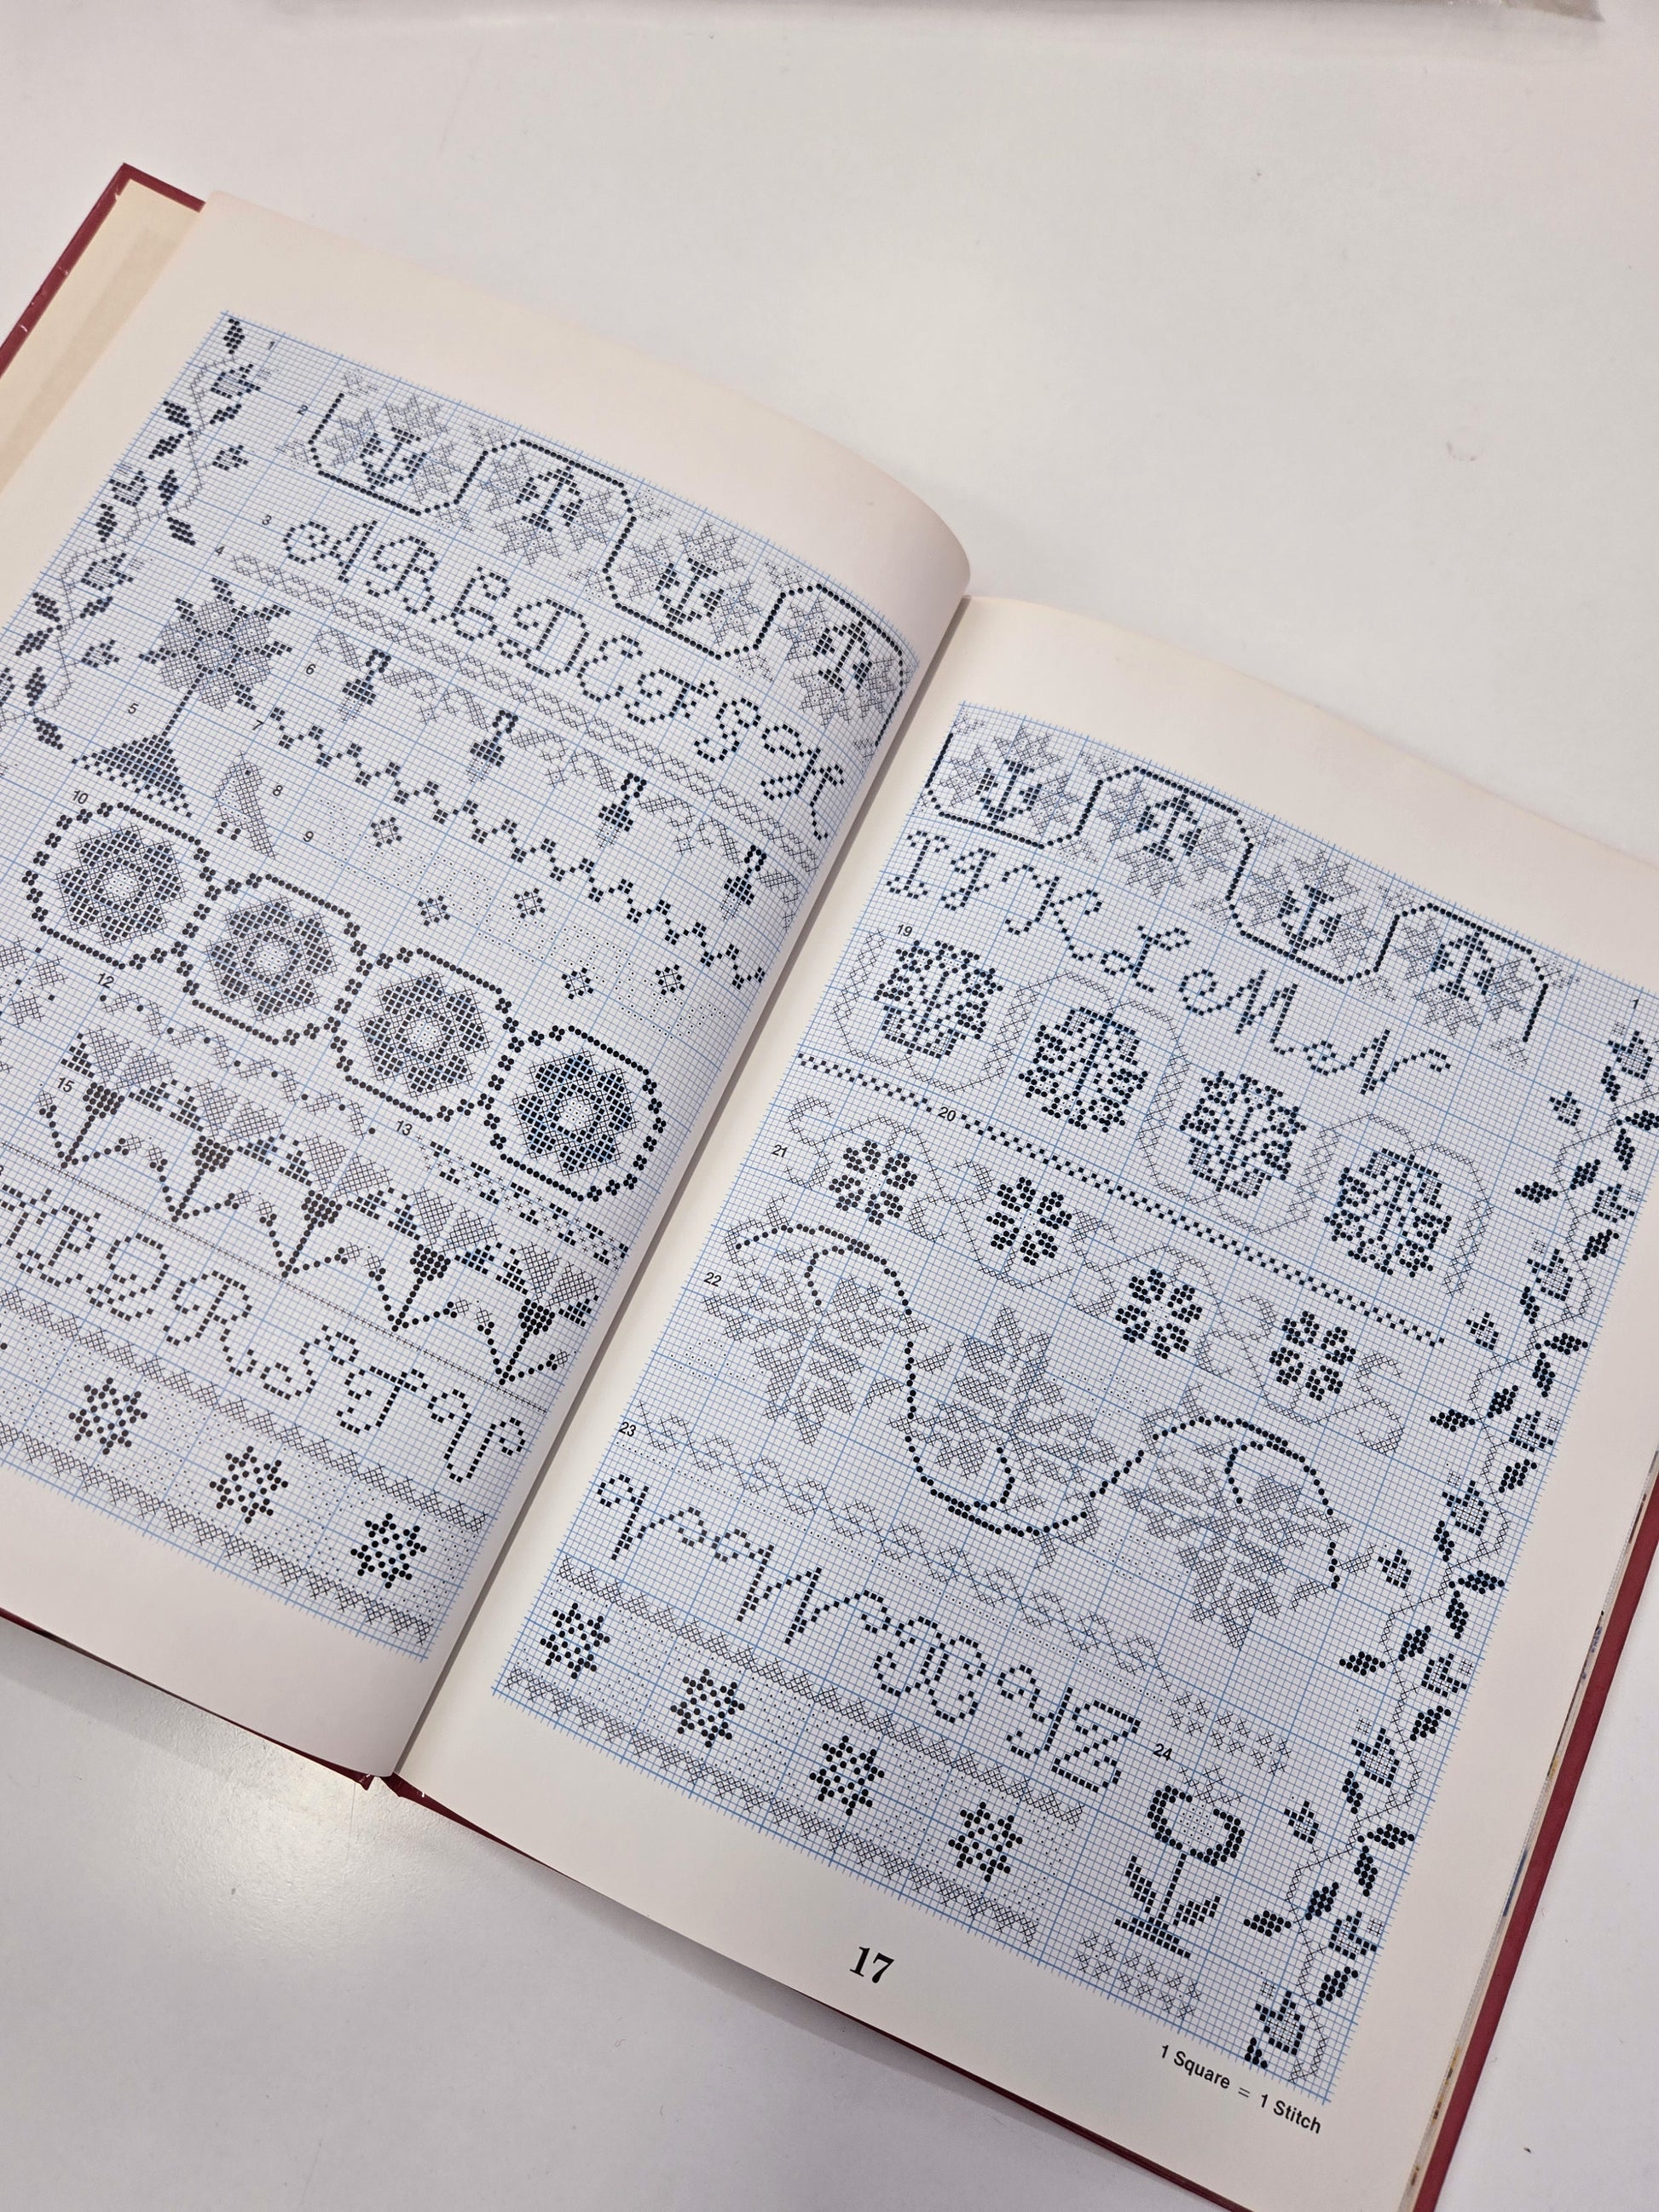 1
2
3
A B C D E F G H
4
5
6
7
8
9
10
12
13
15
P Q R S T U
I J K L M N
1
19
20
21
22
23
V W X Y Z
24
17
1 Square = 1 Stitch